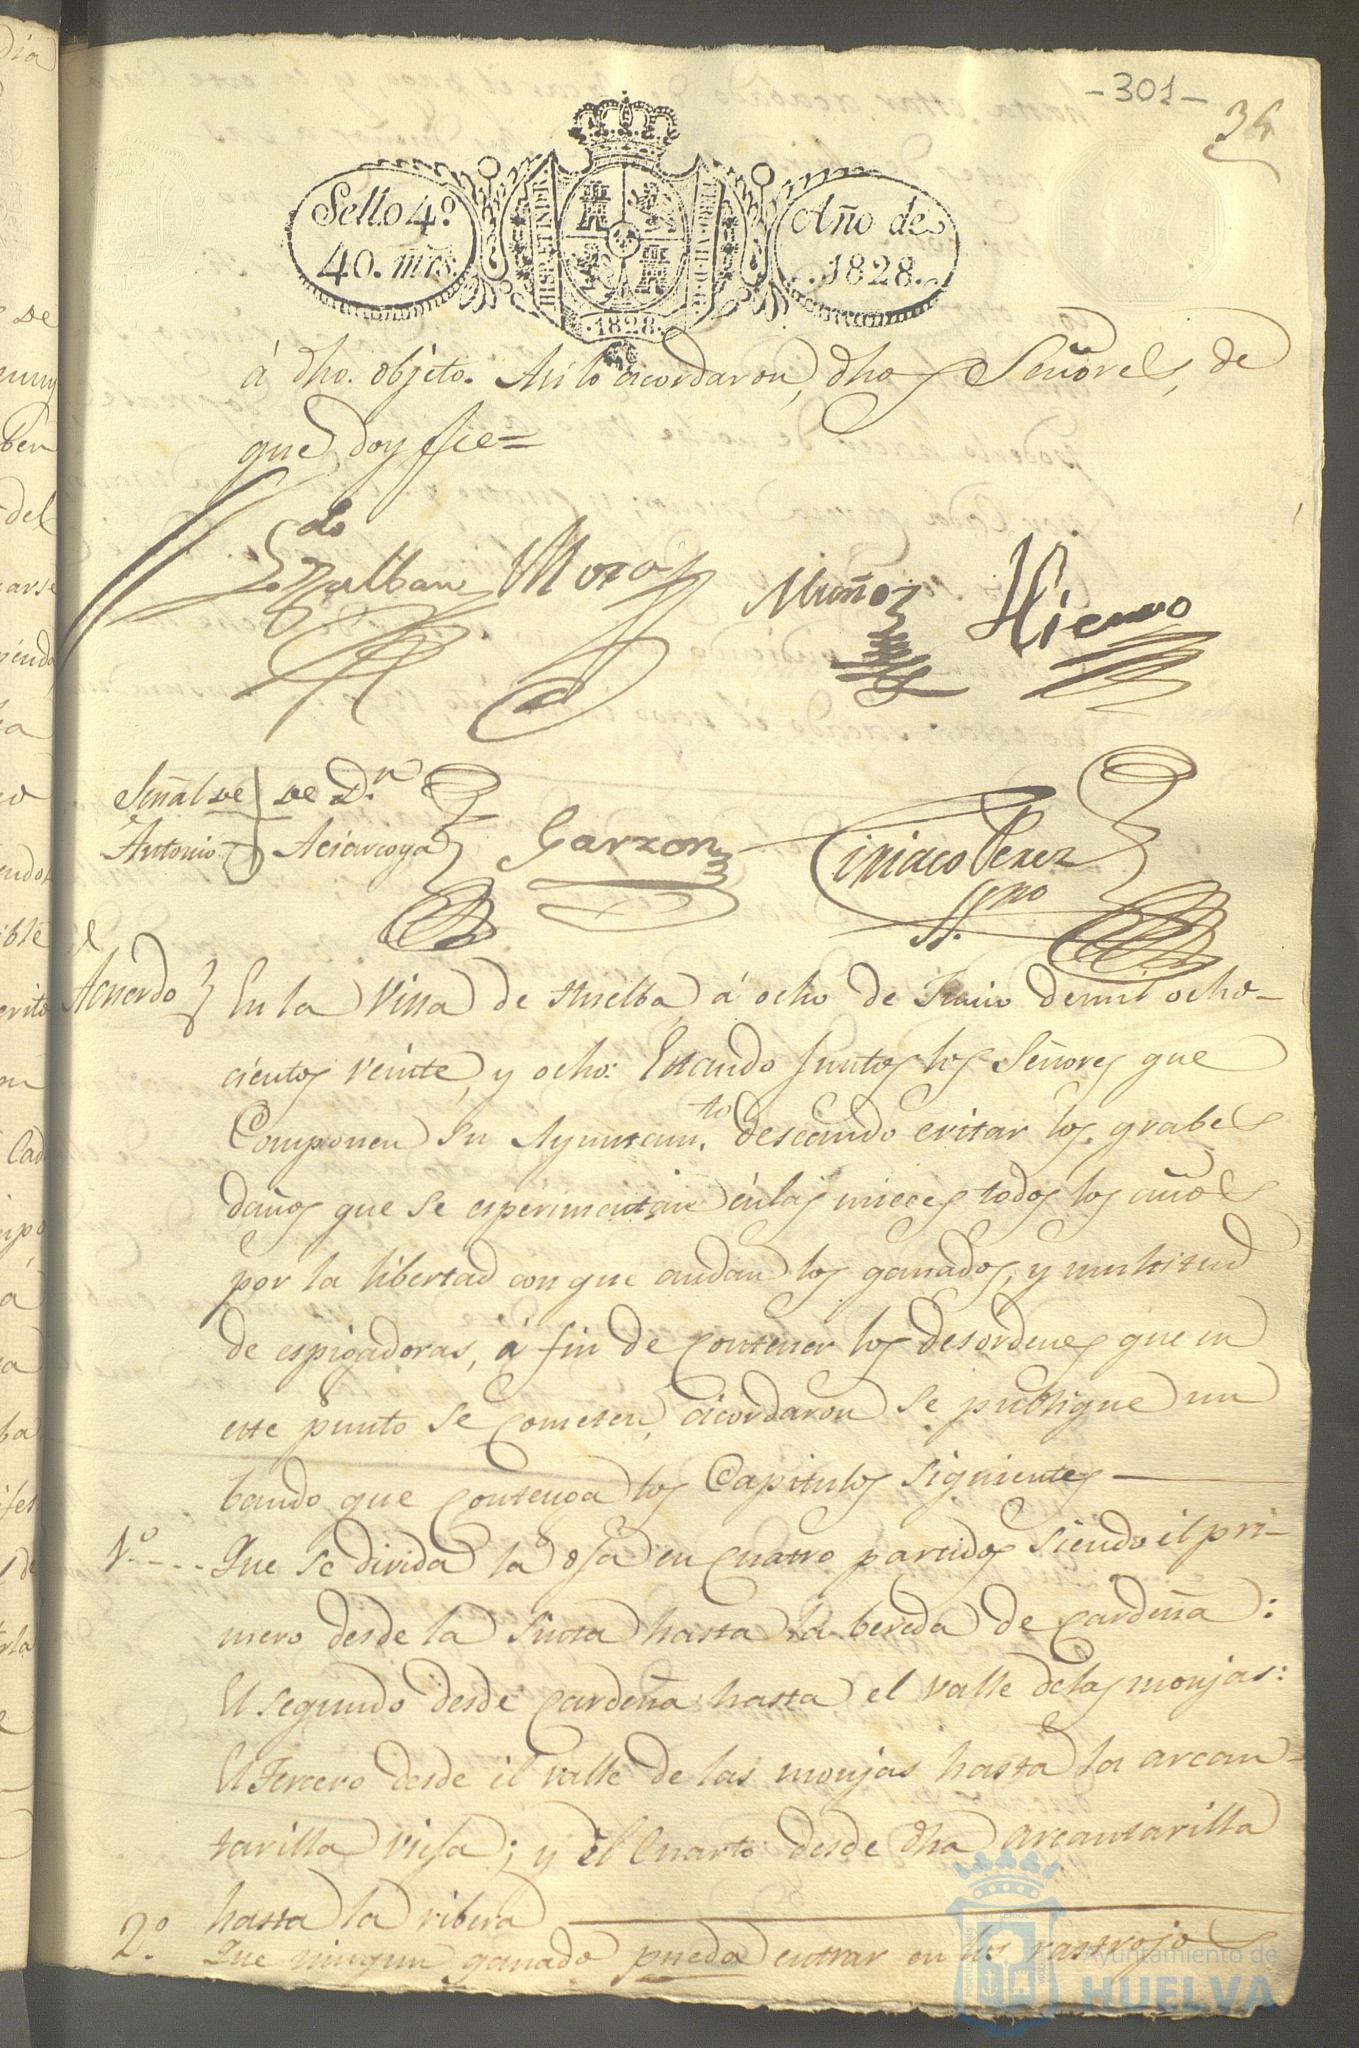 -301-
34
Sello 4º
40. mrs.
HISP. ET IND. R.
Año de
1828.
.1828.
á dho. objeto. Asi lo acordaron, dhos Señores, de
que doy fee=
Ldo
Zalban Mora Muñoz Hierro
Señal de de Dn.
Antonio Aciarcoya Garzon Ciriaco Perez
Ss.no
Acuerdo En la Villa de Huelba, á ocho de Junio de mil ocho-
cientos veinte, y ocho: Estando Juntos los Señores que
Componen su Ayuntam.to deseando evitar los grabes
daños que se esperimentan en las mieces todos los años
por la libertad con que andan los ganados, y multitud
de espigadoras, á fin de contener los desordenes que en
este punto se cometen, acordaron se publique un
bando que contenga los Capitulos siguientes
1.º Que se divida la oja en cuatro partidos siendo el pri-
mero desde la hasta la bereda de Cardeña:
El segundo desde Cardeña hasta el valle de las monjas:
El Tercero desde el valle de las monjas hasta la arcan-
tarilla vieja; y el Cuarto desde dha arcantarilla
hasta la ribera
2.º Que ningun ganado pueda entrar en los rastrojos
Ayuntamiento de
HUELVA